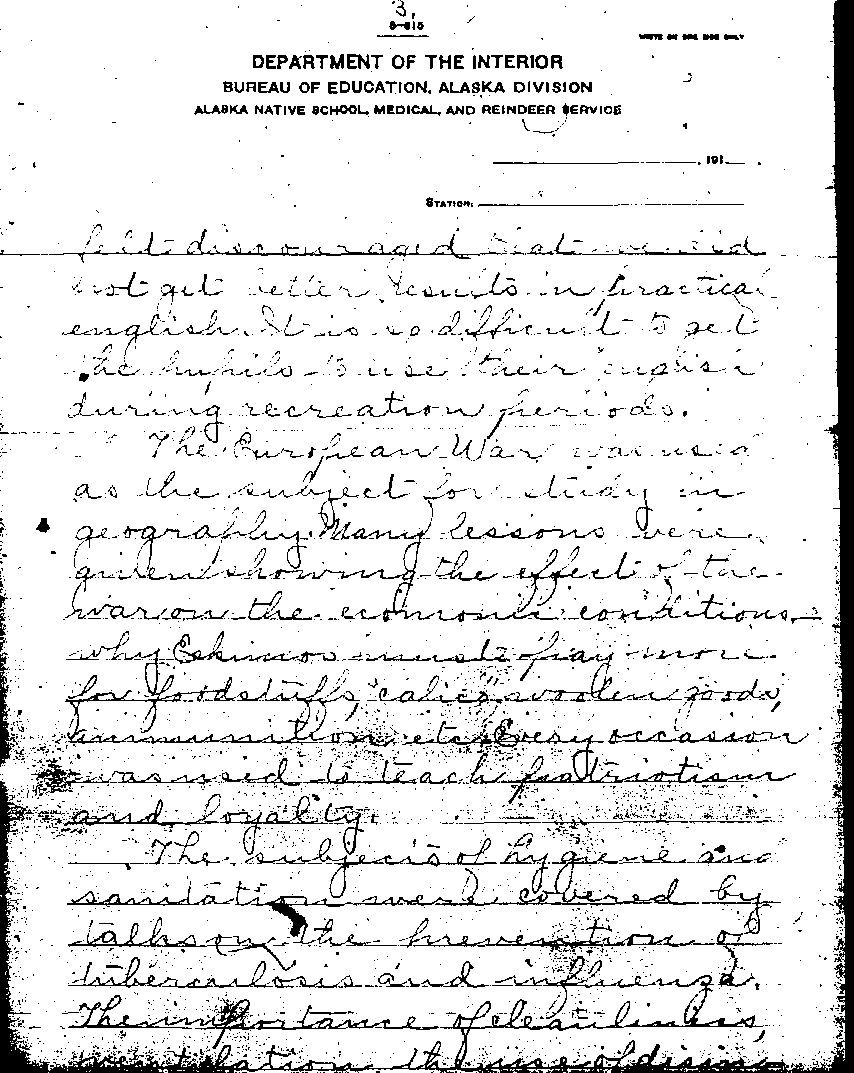 3.
6-815
WRITE ON ONE SIDE ONLY
DEPARTMENT OF THE INTERIOR
BUREAU OF EDUCATION, ALASKA DIVISION
ALASKA NATIVE SCHOOL, MEDICAL, AND REINDEER SERVICE
, 191
STATION:
felt discouraged that we did
not get better results in practical
english. It is so difficult to get
the pupils to use their english
during recreation periods.
The European War was used
as the subject for study in
geography. Many lessons were
given showing the effect of the
war on the economic conditions,
why Eskimos must pay more
for foodstuffs, "calico" woolen goods,
ammunition etc. Every occasion
was used to teach patriotism
and loyalty.
The subjects of hygiene and
sanitation were covered by
talks on the prevention of
tuberculosis and influenza.
The importance of cleanliness,
ventilation, the use of disin